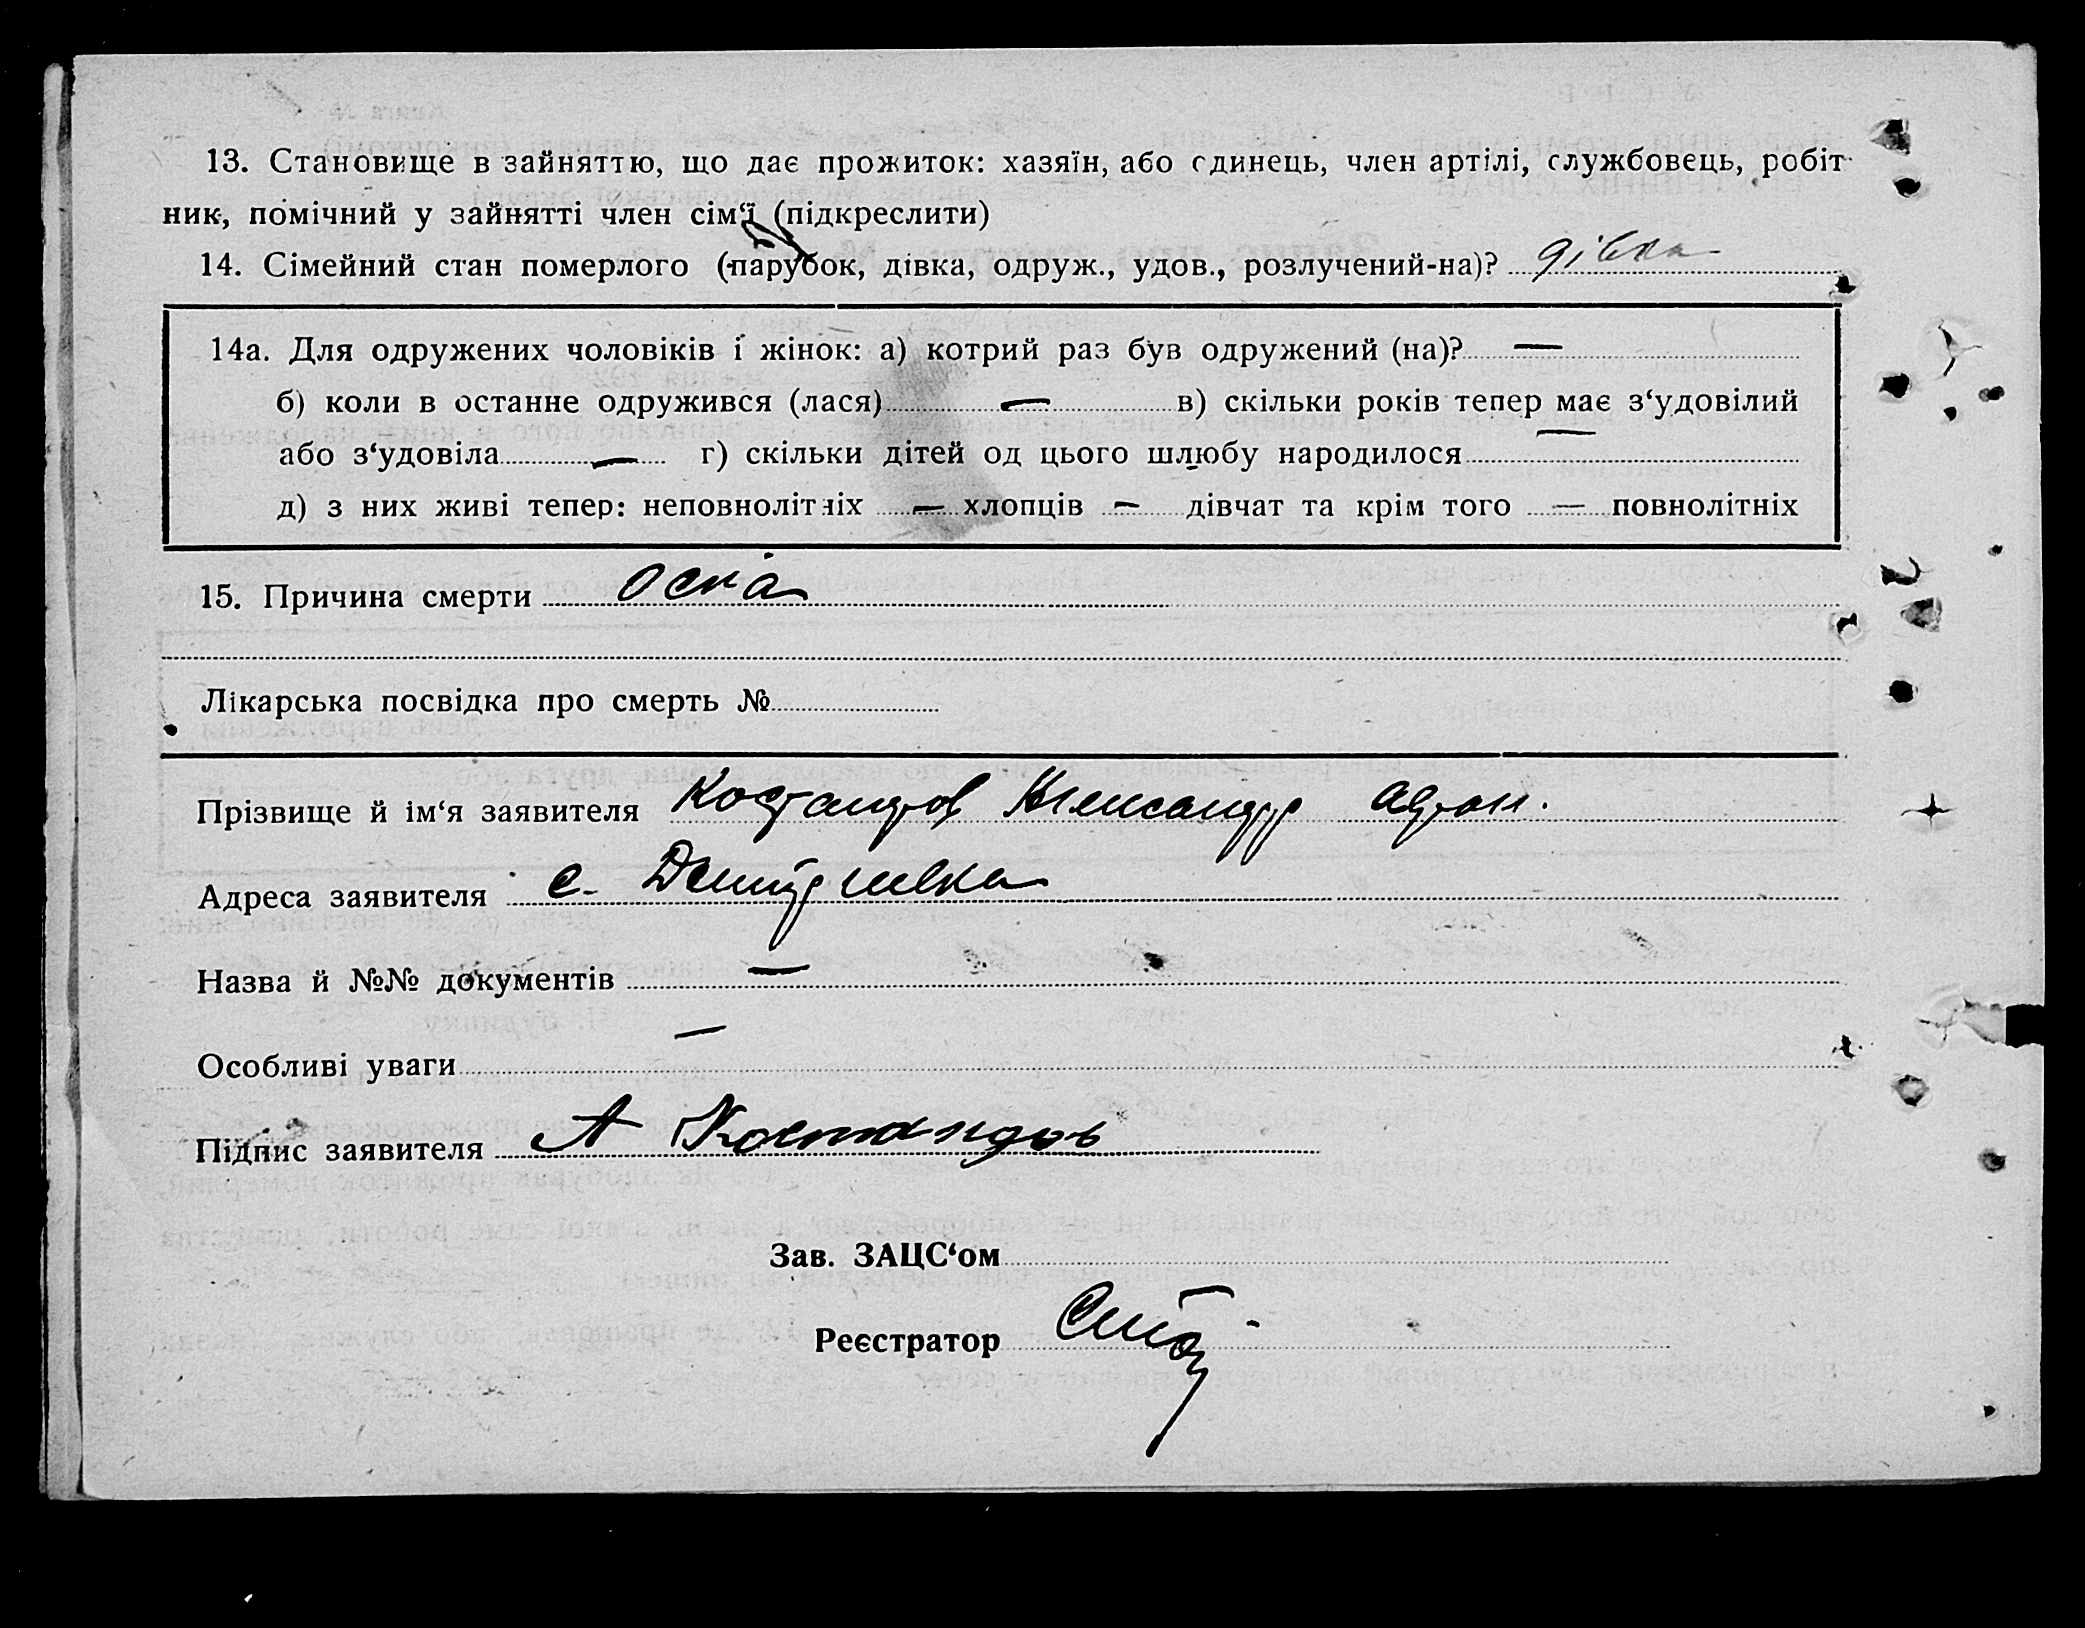 13. Становище в зайняттю, що дає прожиток: хазяїн, або єдинець, член артілі, службовець, робіт-
ник, помічний у зайнятті член сім‘ї (підкреслити)
14. Сімейний стан померлого (парубок, дівка, одруж., удов., розлучений-на)? дівка
14а. Для одружених чоловіків і жінок: а) котрий раз був одружений (на)? —
б) коли в останнє одружився (лася) — в) скільки років тепер має з‘удовілий
або з‘удовіла — г) скільки дітей од цього шлюбу народилося —
д) з них живі тепер: неповнолітніх — хлопців — дівчат та крім того — повнолітніх
15. Причина смерти оспа
Лікарська посвідка про смерть №
Прізвище й ім‘я заявителя Костандов Александр
Адреса заявителя с.
Назва й №№ документів —
Особливі уваги —
Підпис заявителя А Костандов
Зав. ЗАЦС‘ом
Реєстратор